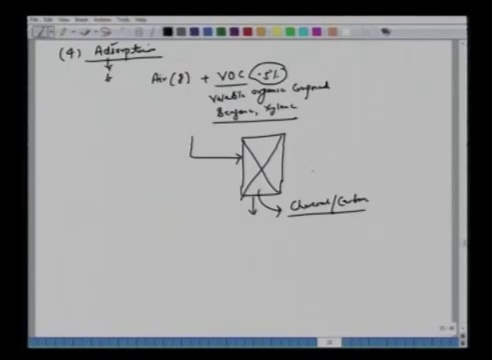 (4) Adsorption
Air(g) + VOC (~5%)
Volatile organic Compound
Benzene, Xylene
Charcoal/Carbon